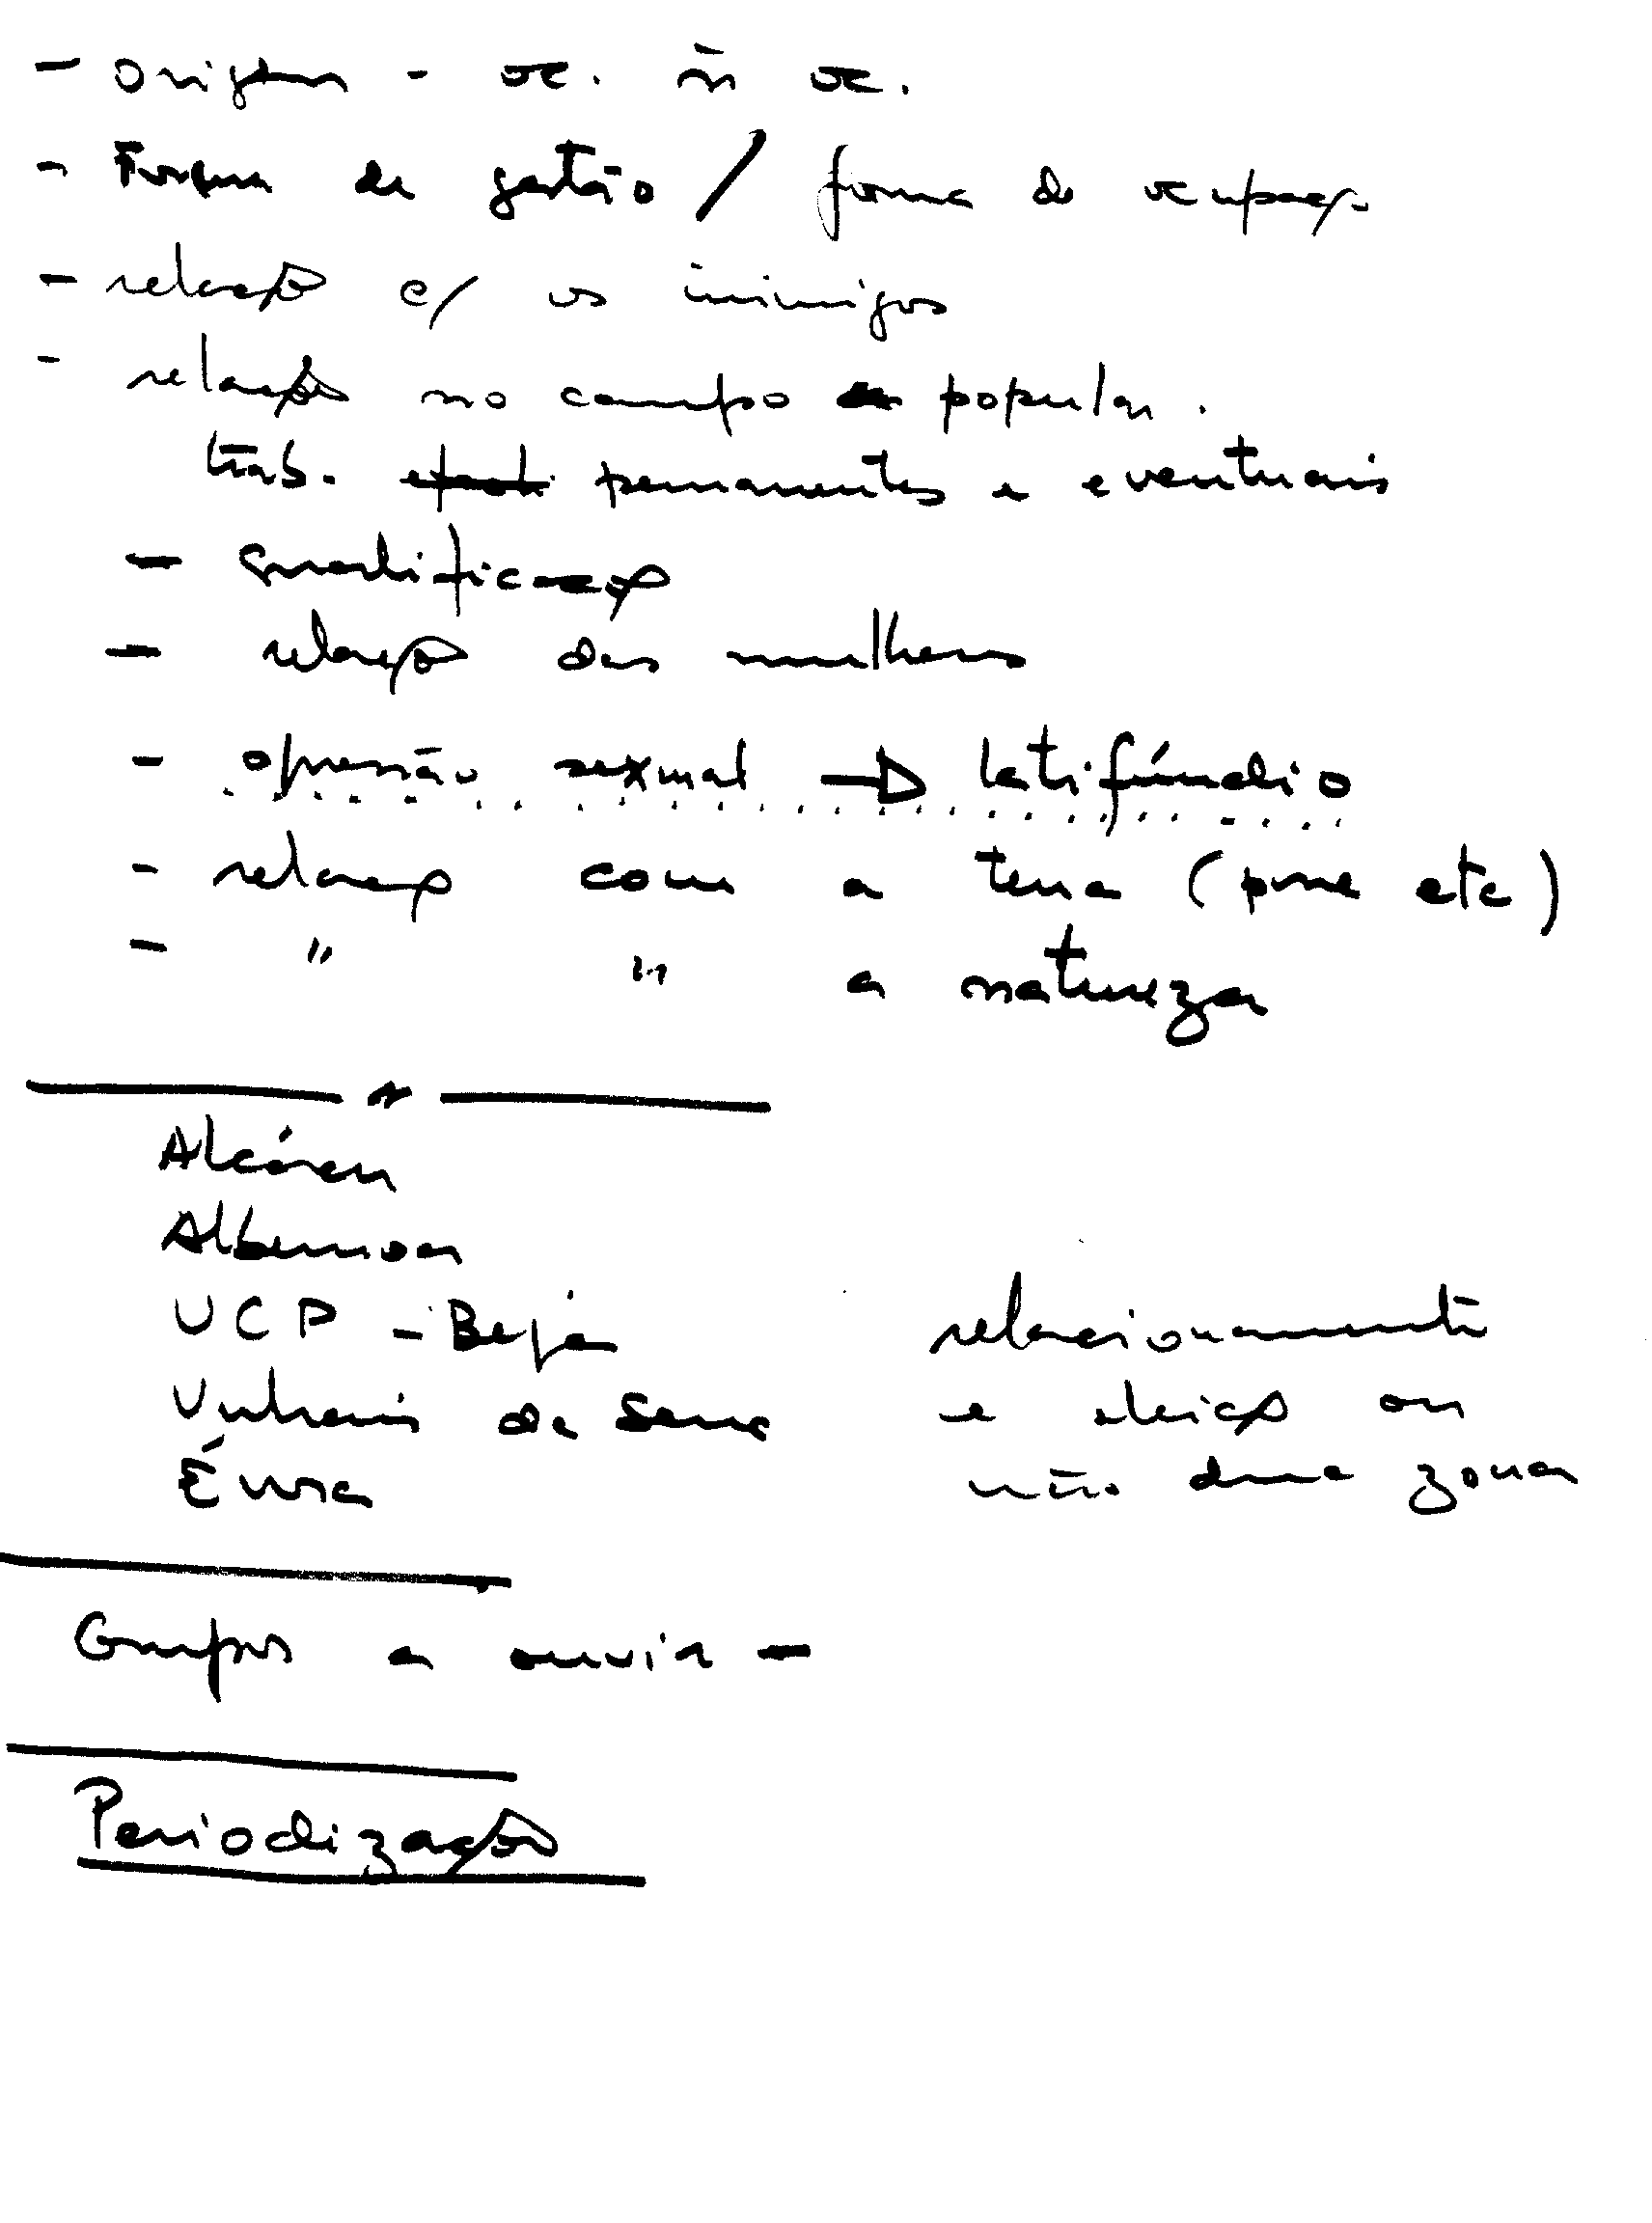 - origem - oc. ñ oc.
- Forma de gestão / forma de ocupação
- relação c/ os inimigos
- relação no campo popular.
trab. permanentes e eventuais
- qualificação
- relação das mulheres
- opressão sexual → latifúndio
- relação com a terra (posse etc)
- " " a natureza
Alcácer
Albernoa
UCP - Beja
Vulheris de Serra
Évora
relacionamento
e eleição ou
não duma zona
Grupos a ouvir -
Periodização